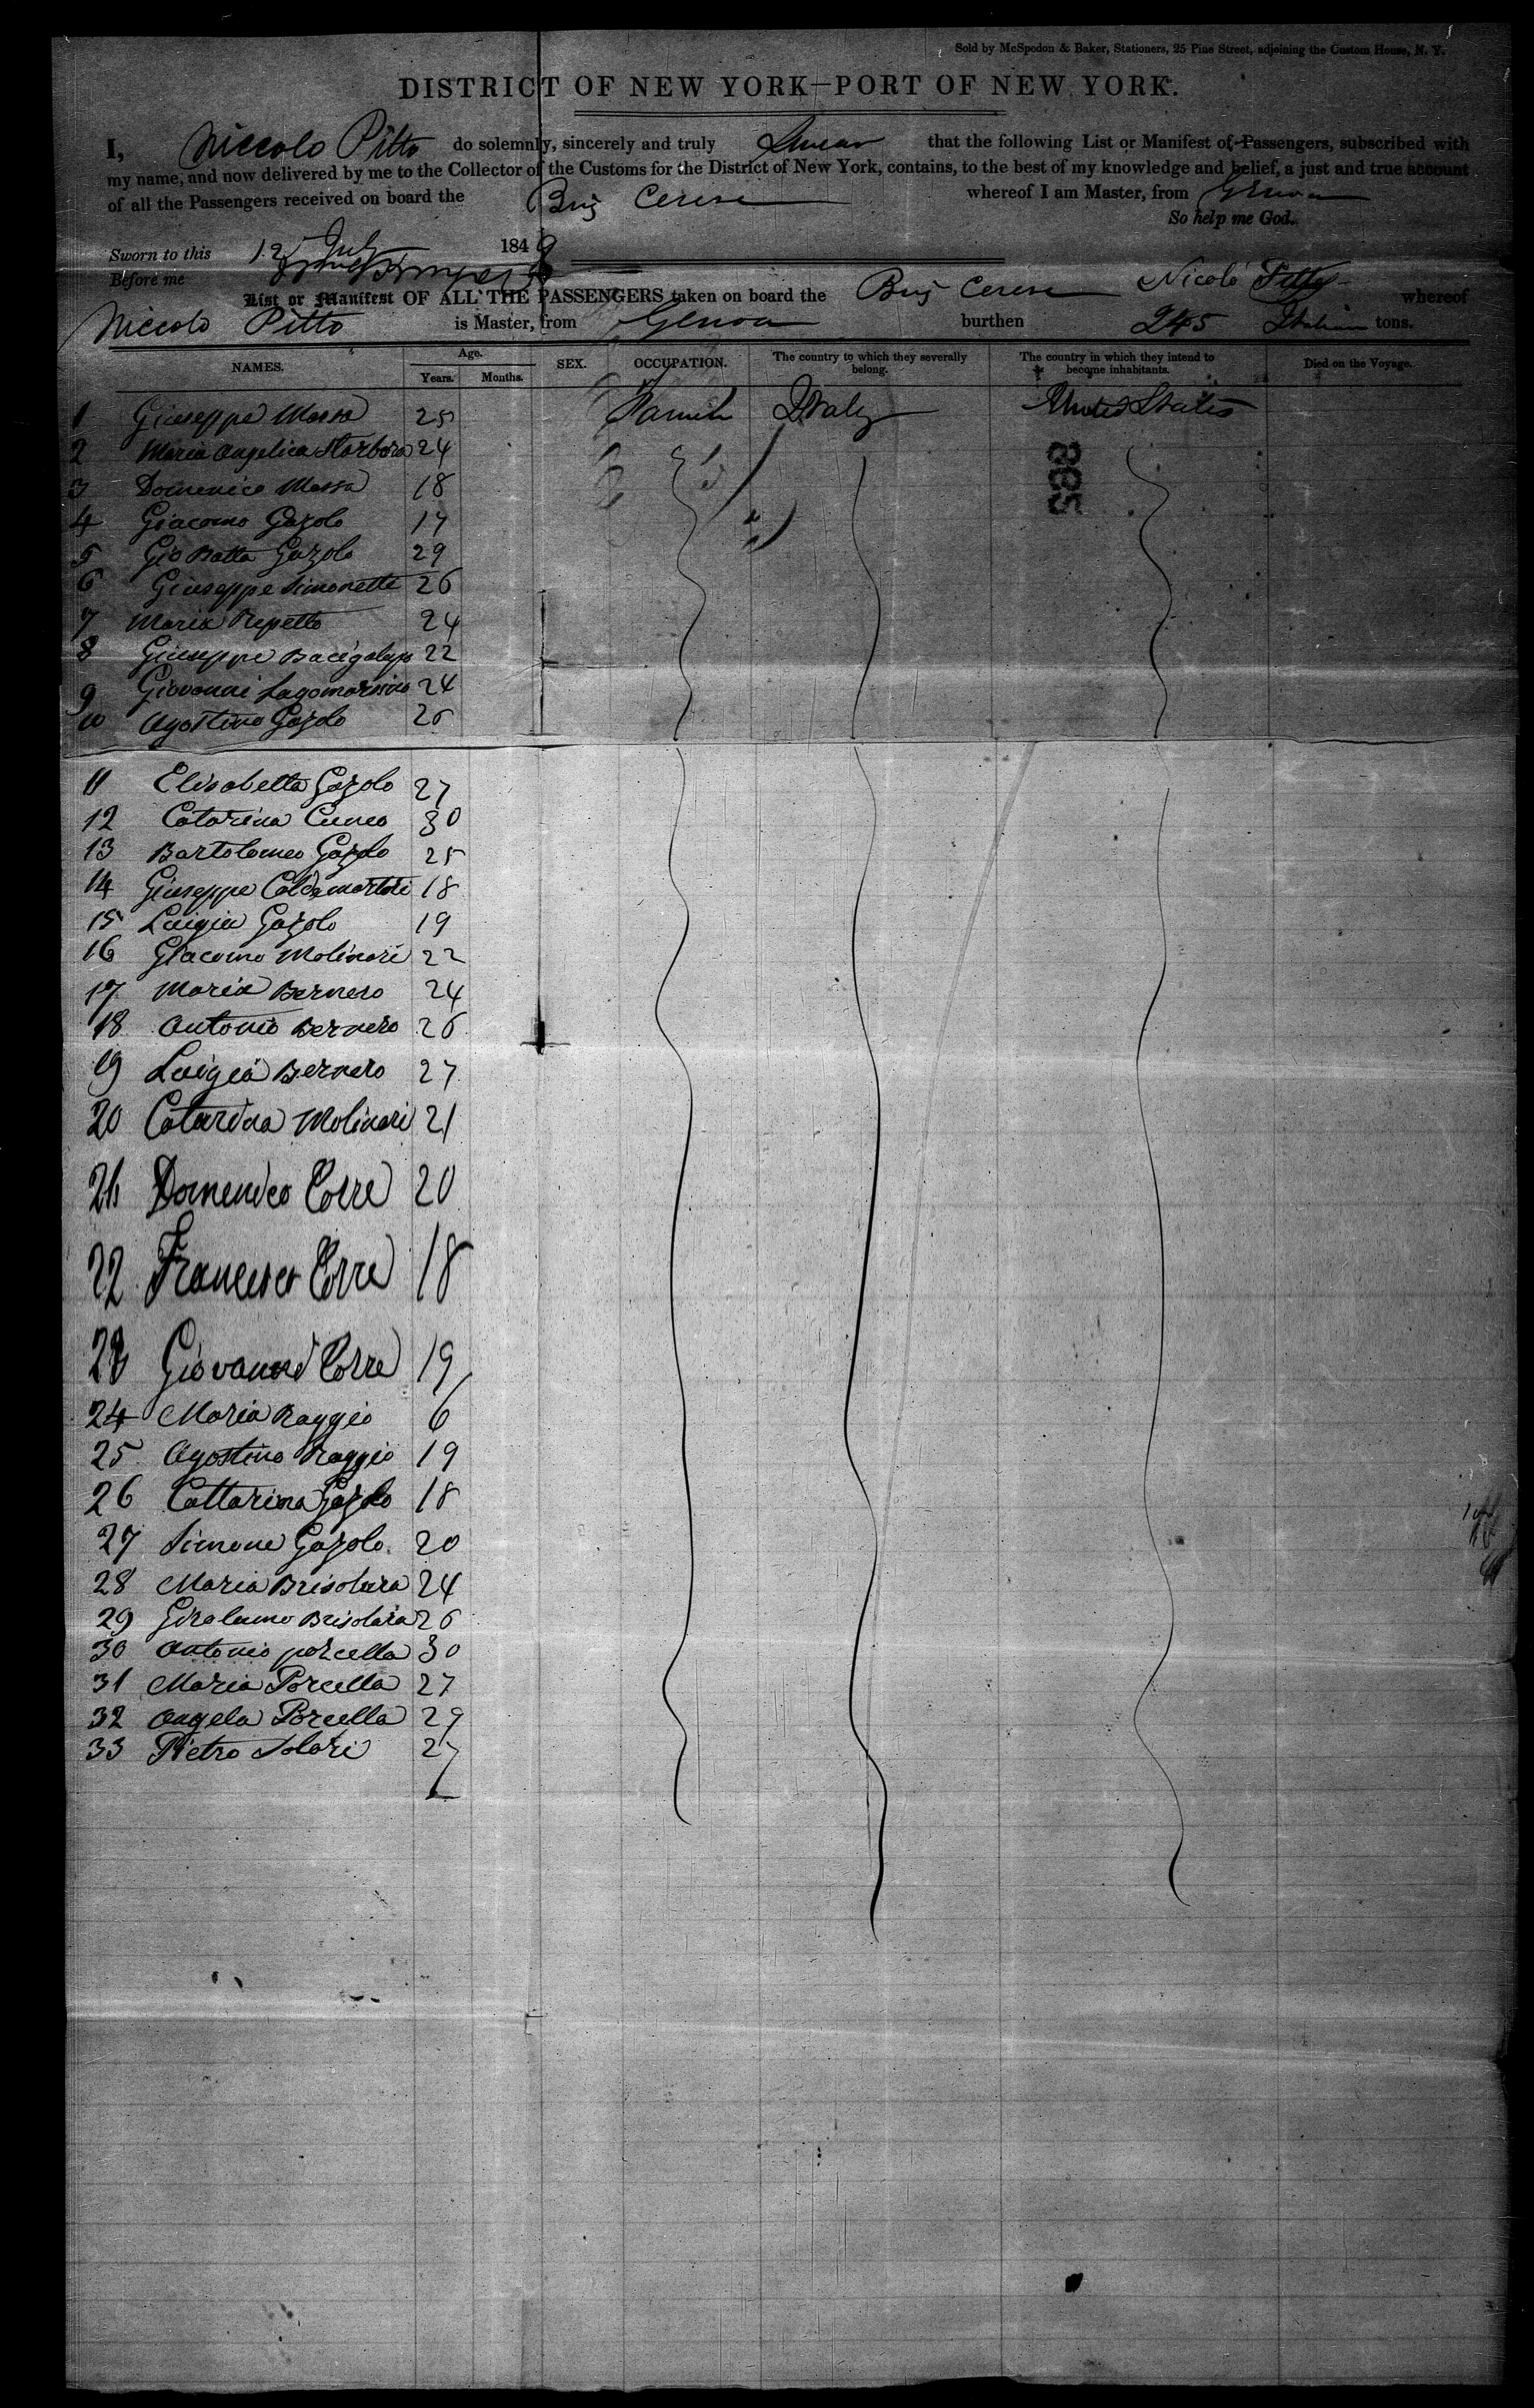 Sold by McSpedon & Baker, Stationers, 25 Pine Street, adjoining the Custom House, N. Y.
DISTRICT OF NEW YORK—PORT OF NEW YORK.
I, Niccolo Pitto do solemnly, sincerely and truly Swear that the following List or Manifest of Passengers, subscribed with
my name, and now delivered by me to the Collector of the Customs for the District of New York, contains, to the best of my knowledge and belief, a just and true account
of all the Passengers received on board the Brig Cerere whereof I am Master, from Genoa
So help me God.
Sworn to this 12 July 1849
Before me
Nicoló Pitto
List or Manifest OF ALL THE PASSENGERS taken on board the Brig Cerere whereof
Niccolo Pitto is Master, from Genoa burthen 245 Italian tons.
NAMES. Age. Years. Months. SEX. OCCUPATION. The country to which they severally belong. The country in which they intend to become inhabitants. Died on the Voyage.
1 Giuseppe Massa 25 Italy United States
2 Maria Angelica 24
3 Domenico Massa 18
4 Giacomo Gazolo 17
5 Gio Batta Gazolo 29
6 Giuseppe Simonetti 26
7 Maria Repetto 24
8 Giuseppe Bacigalupo 22
9 Giovanni Lagomarsino 24
10 Agostino Gazolo 26
885
11 Elisabetta Gazolo 27
12 Catarina Cuneo 30
13 Bartolomeo Gazolo 25
14 Giuseppe 18
15 Luigia Gazolo 19
16 Giacomo Molinari 22
17 Maria Bernero 24
18 Antonio Bernero 26
19 Luigia Bernero 27
20 Catarina Molinari 21
21 Domenico Corre 20
22 Francesco Corre 18
23 Giovanni Corre 19
24 Maria Raggio 6
25 Agostino Raggio 19
26 Cattarina Gazolo 18
27 Simone Gazolo. 20
28 Maria Brisolara 24
29 Girolamo Brisolara 26
30 Antonio porcella 30
31 Maria Porcella 27
32 Angela Porcella 29
33 Pietro Solari 27